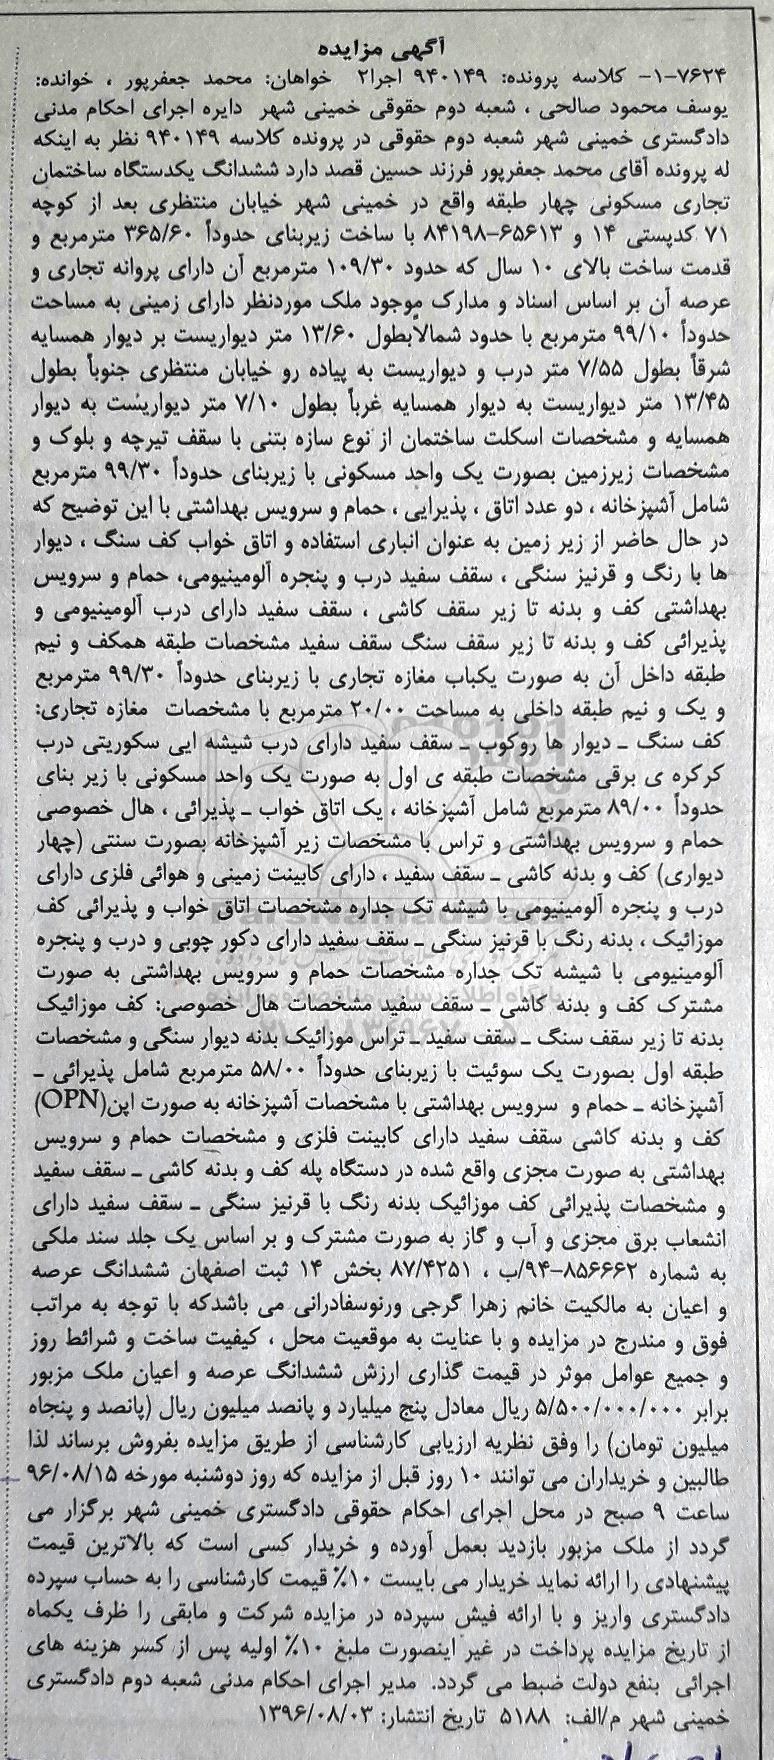 آگهی مزایده
۷۶۲۴-۱- کلاسه پرونده: ۹۴۰۱۴۹ اجرا۲ خواهان: محمد جعفرپور ، خوانده:
یوسف محمود صالحی ، شعبه دوم حقوقی خمینی شهر دایره اجرای احکام مدنی
دادگستری خمینی شهر شعبه دوم حقوقی در پرونده کلاسه ۹۴۰۱۴۹ نظر به اینکه
له پرونده آقای محمد جعفرپور فرزند حسین قصد دارد ششدانگ یکدستگاه ساختمان
تجاری مسکونی چهار طبقه واقع در خمینی شهر خیابان منتظری بعد از کوچه
۷۱ کدپستی ۱۴ و ۶۵۶۱۳-۸۴۱۹۸ با ساخت زیربنای حدوداً ۳۶۵/۶۰ مترمربع و
قدمت ساخت بالای ۱۰ سال که حدود ۱۰۹/۳۰ مترمربع آن دارای پروانه تجاری و
عرصه آن بر اساس اسناد و مدارک موجود ملک موردنظر دارای زمینی به مساحت
حدوداً ۹۹/۱۰ مترمربع با حدود شمالاًبطول ۱۳/۶۰ متر دیواریست بر دیوار همسایه
شرقاً بطول ۷/۵۵ متر درب و دیواریست به پیاده رو خیابان منتظری جنوباً بطول
۱۳/۴۵ متر دیواریست به دیوار همسایه غرباً بطول ۷/۱۰ متر دیواریست به دیوار
همسایه و مشخصات اسکلت ساختمان از نوع سازه بتنی با سقف تیرچه و بلوک و
مشخصات زیرزمین بصورت یک واحد مسکونی با زیربنای حدوداً ۹۹/۳۰ مترمربع
شامل آشپزخانه ، دو عدد اتاق ، پذیرایی ، حمام و سرویس بهداشتی با این توضیح که
در حال حاضر از زیر زمین به عنوان انباری استفاده و اتاق خواب کف سنگ ، دیوار
ها با رنگ و قرنیز سنگی ، سقف سفید درب و پنجره آلومینیومی، حمام و سرویس
بهداشتی کف و بدنه تا زیر سقف کاشی ، سقف سفید دارای درب آلومینیومی و
پذیرائی کف و بدنه تا زیر سقف سنگ سقف سفید مشخصات طبقه همکف و نیم
طبقه داخل آن به صورت یکباب مغازه تجاری با زیربنای حدوداً ۹۹/۳۰ مترمربع
و یک و نیم طبقه داخلی به مساحت ۲۰/۰۰ مترمربع با مشخصات مغازه تجاری:
کف سنگ ـ دیوار ها روکوب ـ سقف سفید دارای درب شیشه ایی سکوریتی درب
کرکره ی برقی مشخصات طبقه ی اول به صورت یک واحد مسکونی با زیر بنای
حدوداً ۸۹/۰۰ مترمربع شامل آشپزخانه ، یک اتاق خواب ـ پذیرائی ، هال خصوصی
حمام و سرویس بهداشتی و تراس با مشخصات زیر آشپزخانه بصورت سنتی (چهار
دیواری) کف و بدنه کاشی ـ سقف سفید ، دارای کابینت زمینی و هوائی فلزی دارای
درب و پنجره آلومینیومی با شیشه تک جداره مشخصات اتاق خواب و پذیرائی کف
موزائیک ، بدنه رنگ با قرنیز سنگی ـ سقف سفید دارای دکور چوبی و درب و پنجره
آلومینیومی با شیشه تک جداره مشخصات حمام و سرویس بهداشتی به صورت
مشترک کف و بدنه کاشی ـ سقف سفید مشخصات هال خصوصی: کف موزائیک
بدنه تا زیر سقف سنگ ـ سقف سفید ـ تراس موزائیک بدنه دیوار سنگی و مشخصات
طبقه اول بصورت یک سوئیت با زیربنای حدوداً ۵۸/۰۰ مترمربع شامل پذیرائی ـ
آشپزخانه ـ حمام و سرویس بهداشتی با مشخصات آشپزخانه به صورت اپن(OPN)
کف و بدنه کاشی سقف سفید دارای کابینت فلزی و مشخصات حمام و سرویس
بهداشتی به صورت مجزی واقع شده در دستگاه پله کف و بدنه کاشی ـ سقف سفید
و مشخصات پذیرائی کف موزائیک بدنه رنگ با قرنیز سنگی ـ سقف سفید دارای
انشعاب برق مجزی و آب و گاز به صورت مشترک و بر اساس یک جلد سند ملکی
به شماره ۸۵۶۶۶۲-۹۴/ب ، ۸۷/۴۲۵۱ بخش ۱۴ ثبت اصفهان ششدانگ عرصه
و اعیان به مالکیت خانم زهرا گرجی ورنوسفادرانی می باشدکه با توجه به مراتب
فوق و مندرج در مزایده و با عنایت به موقعیت محل ، کیفیت ساخت و شرائط روز
و جمیع عوامل موثر در قیمت گذاری ارزش ششدانگ عرصه و اعیان ملک مزبور
برابر ۵/۵۰۰/۰۰۰/۰۰۰ ریال معادل پنج میلیارد و پانصد میلیون ریال (پانصد و پنجاه
میلیون تومان) را وفق نظریه ارزیابی کارشناسی از طریق مزایده بفروش برساند لذا
طالبین و خریداران می توانند ۱۰ روز قبل از مزایده که روز دوشنبه مورخه ۹۶/۰۸/۱۵
ساعت ۹ صبح در محل اجرای احکام حقوقی دادگستری خمینی شهر برگزار می
گردد از ملک مزبور بازدید بعمل آورده و خریدار کسی است که بالاترین قیمت
پیشنهادی را ارائه نماید خریدار می بایست ۱۰٪ قیمت کارشناسی را به حساب سپرده
دادگستری واریز و با ارائه فیش سپرده در مزایده شرکت و مابقی را ظرف یکماه
از تاریخ مزایده پرداخت در غیر اینصورت ملبغ ۱۰٪ اولیه پس از کسر هزینه های
اجرائی بنفع دولت ضبط می گردد. مدیر اجرای احکام مدنی شعبه دوم دادگستری
خمینی شهر م/الف: ۵۱۸۸ تاریخ انتشار: ۱۳۹۶/۰۸/۰۳